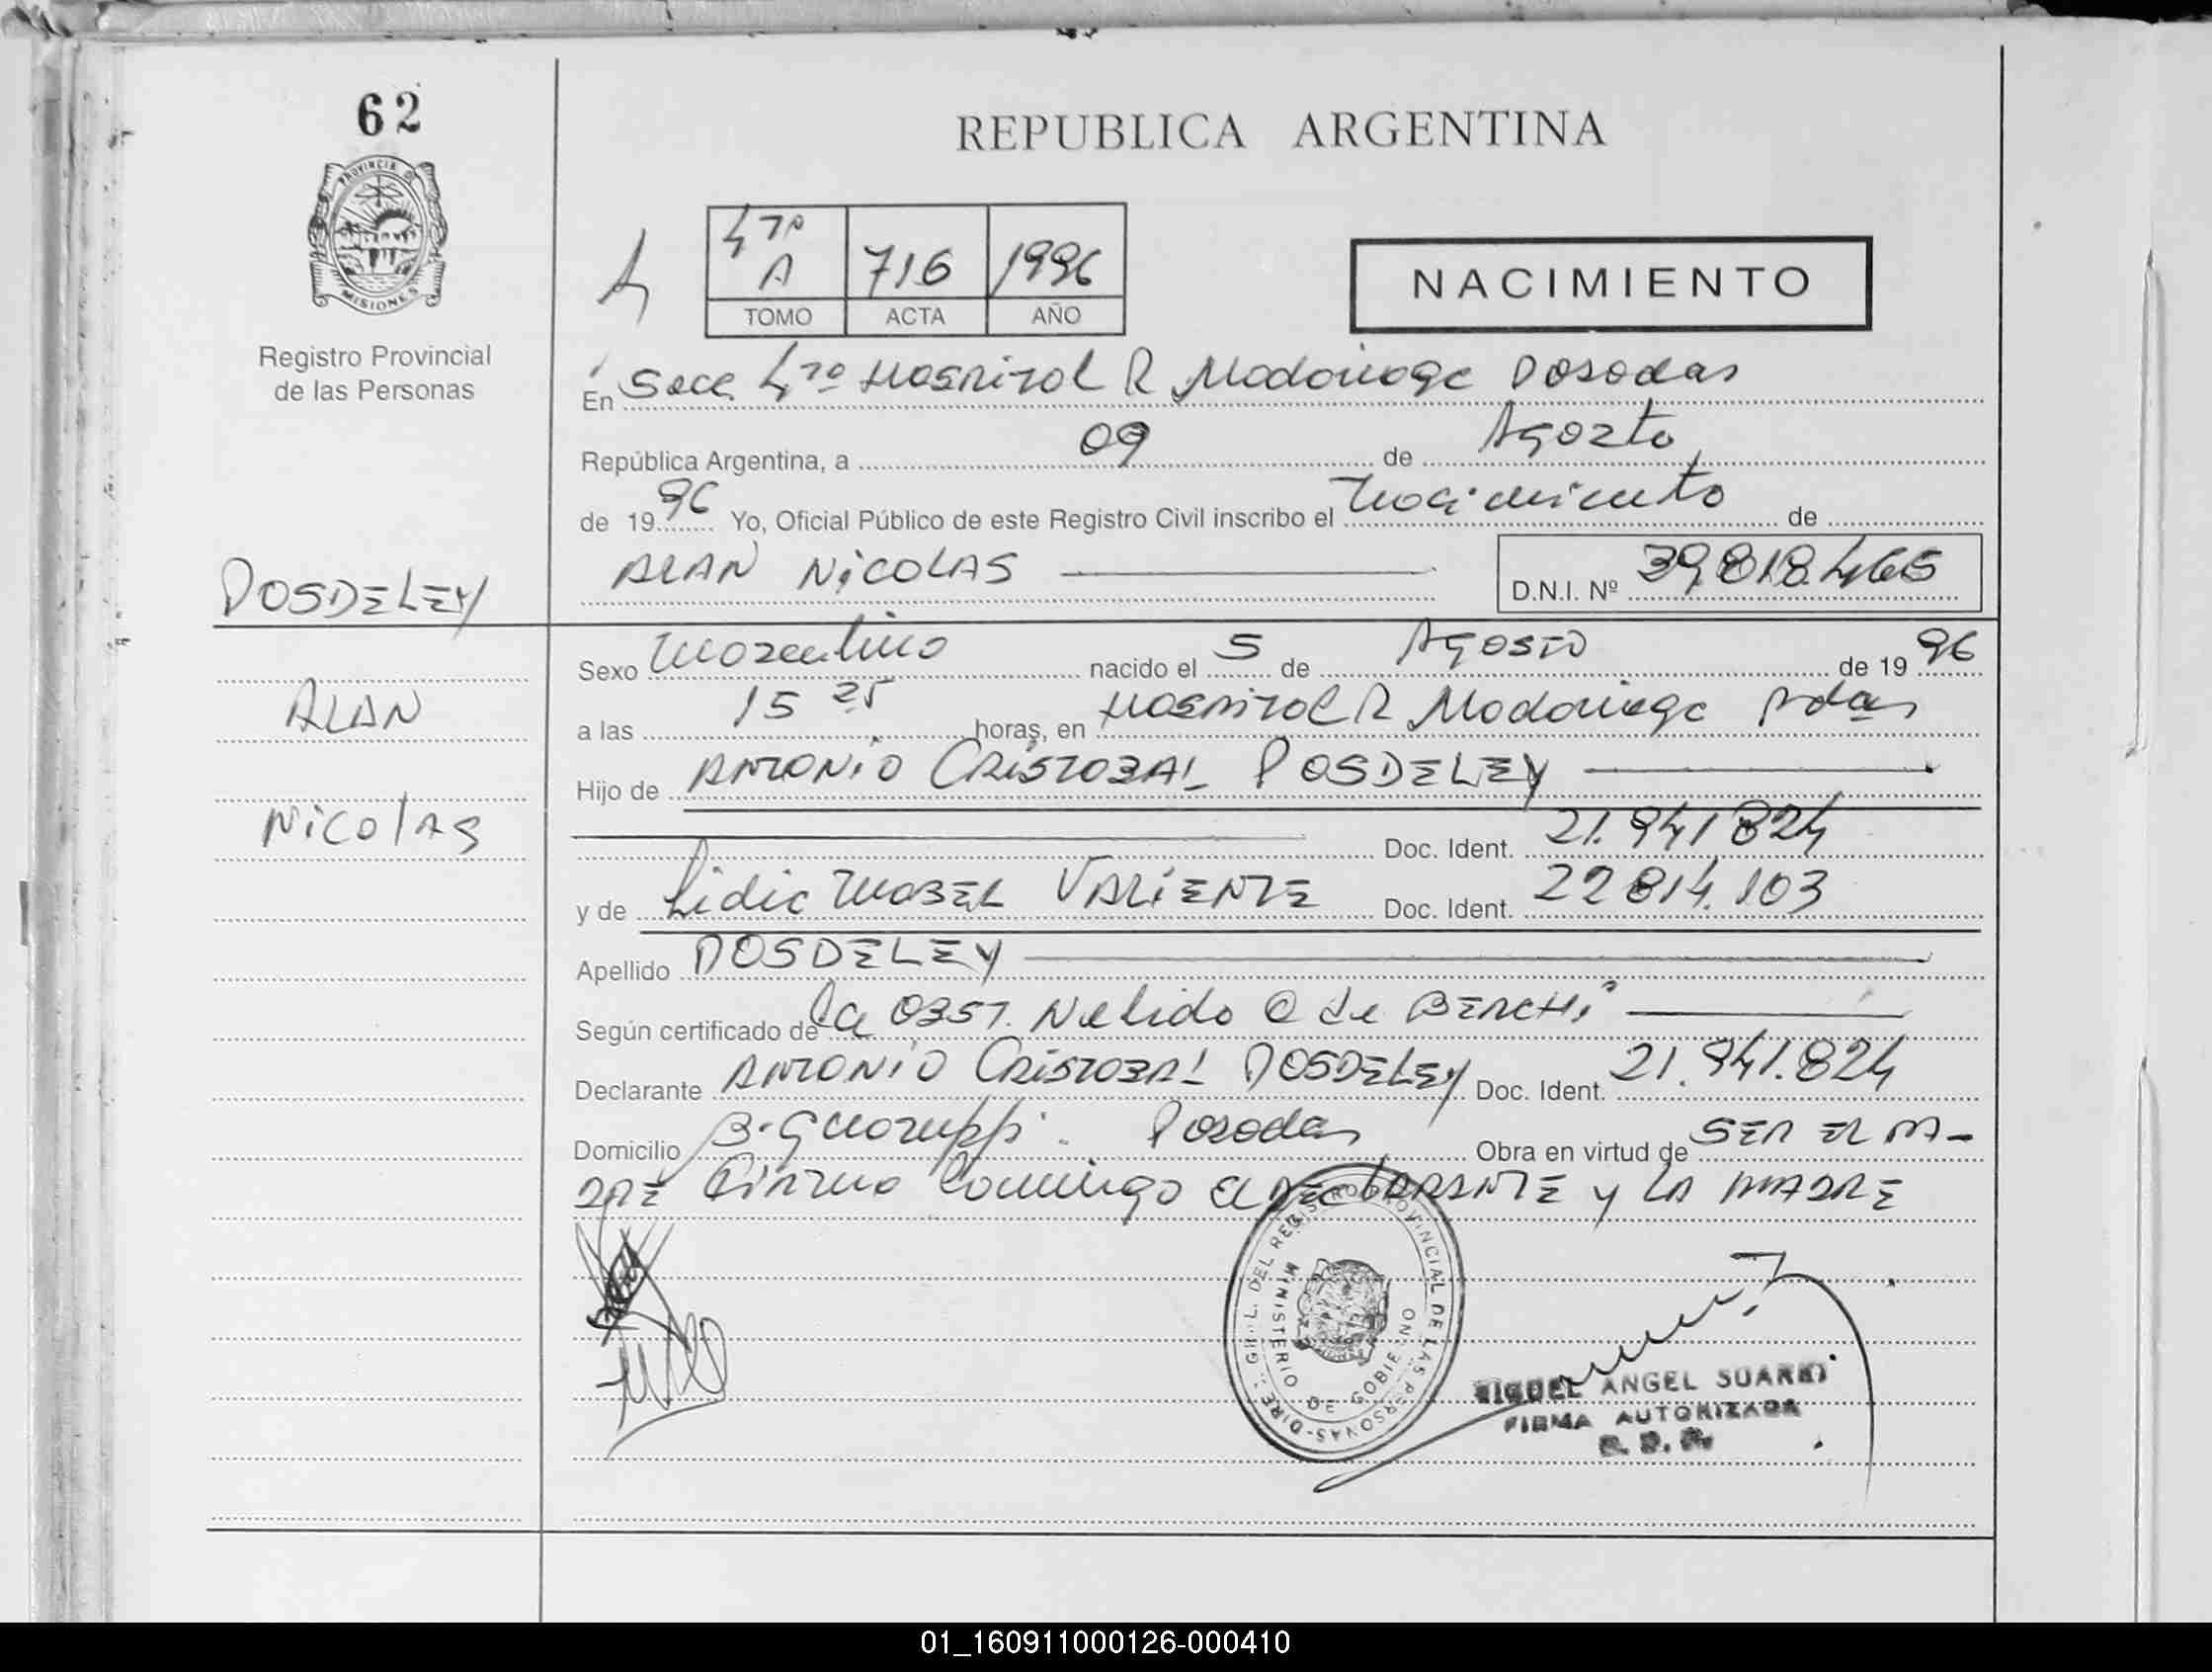 62
PROVINCIA DE
MISIONES
Registro Provincial
de las Personas
REPUBLICA ARGENTINA
4
4TA
A
716
1996
TOMO
ACTA
AÑO
NACIMIENTO
En Secc 4ta Hospital R Madariaga Posadas
República Argentina, a 09 de Agosto
de 1996 Yo, Oficial Público de este Registro Civil inscribo el nacimiento de
ALAN NICOLAS
D.N.I. Nº 39.818.465
POSDELEY
ALAN
Nicolas
Sexo masculino nacido el 5 de Agosto de 1996
a las 15 25 horas, en Hospital R Madariaga Pdas
Hijo de ANTONIO CRISTOBAL POSDELEY
Doc. Ident. 21.941824
y de Lidia MABEL VALIENTE Doc. Ident. 22814.103
Apellido POSDELEY
Según certificado de la OBST. Nelida de BERCHI
Declarante ANTONIO CRISTOBAL POSDELEY Doc. Ident. 21.941.824
Domicilio Posadas Obra en virtud de SER EL PA-
DRE Firma conmigo el DECLARANTE y LA MADRE
DEL REGISTRO PROVINCIAL DE LAS PERSONAS
MINISTERIO DE GOBIERNO
MIGUEL ANGEL SUAREZ
FIRMA AUTORIZADA
01_160911000126-000410